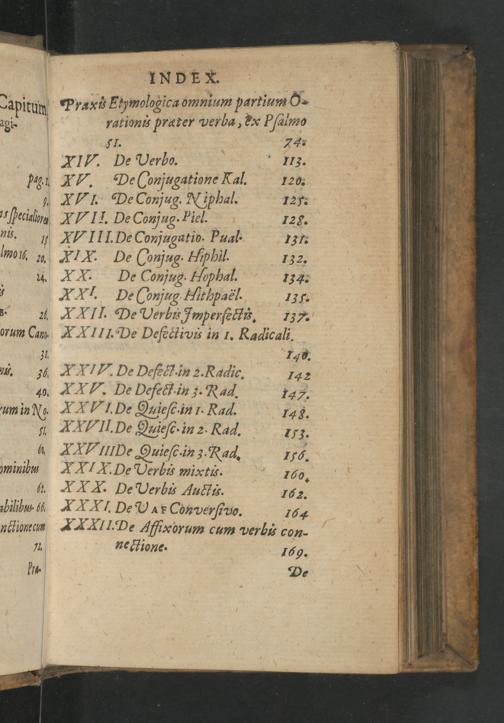 Capitum,
agi-
pag. 1.
9.
as specialiores
nis. 15
lmo 16. 20.
24.
is
B. 26.
orum Cano-
31.
nis. 36.
40.
rum in No-
51.
60.
ominibus
62.
abilibus. 66.
nctione cum
72.
Pra-
INDEX.
Praxis Etymologica omnium partium O-
rationis præter verba, ex Psalmo
51. 74.
XIV. De Verbo. 113.
XV. De Conjugatione Kal. 120.
XVI. De Conjug. Niphal. 125.
XVII. De Conjug. Piel. 128.
XVIII. De Conjugatio. Pual. 131.
XIX. De Conjug. Hiphil. 132.
XX. De Conjug. Hophal. 134.
XXI. De Conjug. Hithpaël. 135.
XXII. De Verbis Imperfectis. 137.
XXIII. De Defectivis in 1. Radicali.
140.
XXIV. De Defect. in 2. Radic. 142
XXV. De Defect. in 3. Rad. 147.
XXVI. De Quiesc. in 1. Rad. 148.
XXVII. De Quiesc. in 2. Rad. 153.
XXVIII De Quiesc. in 3. Rad. 156.
XXIX. De Verbis mixtis. 160.
XXX. De Verbis Auctis. 162.
XXXI. De VAF Conversivo. 164
XXXII. De Affixorum cum verbis con-
nectione. 169.
De